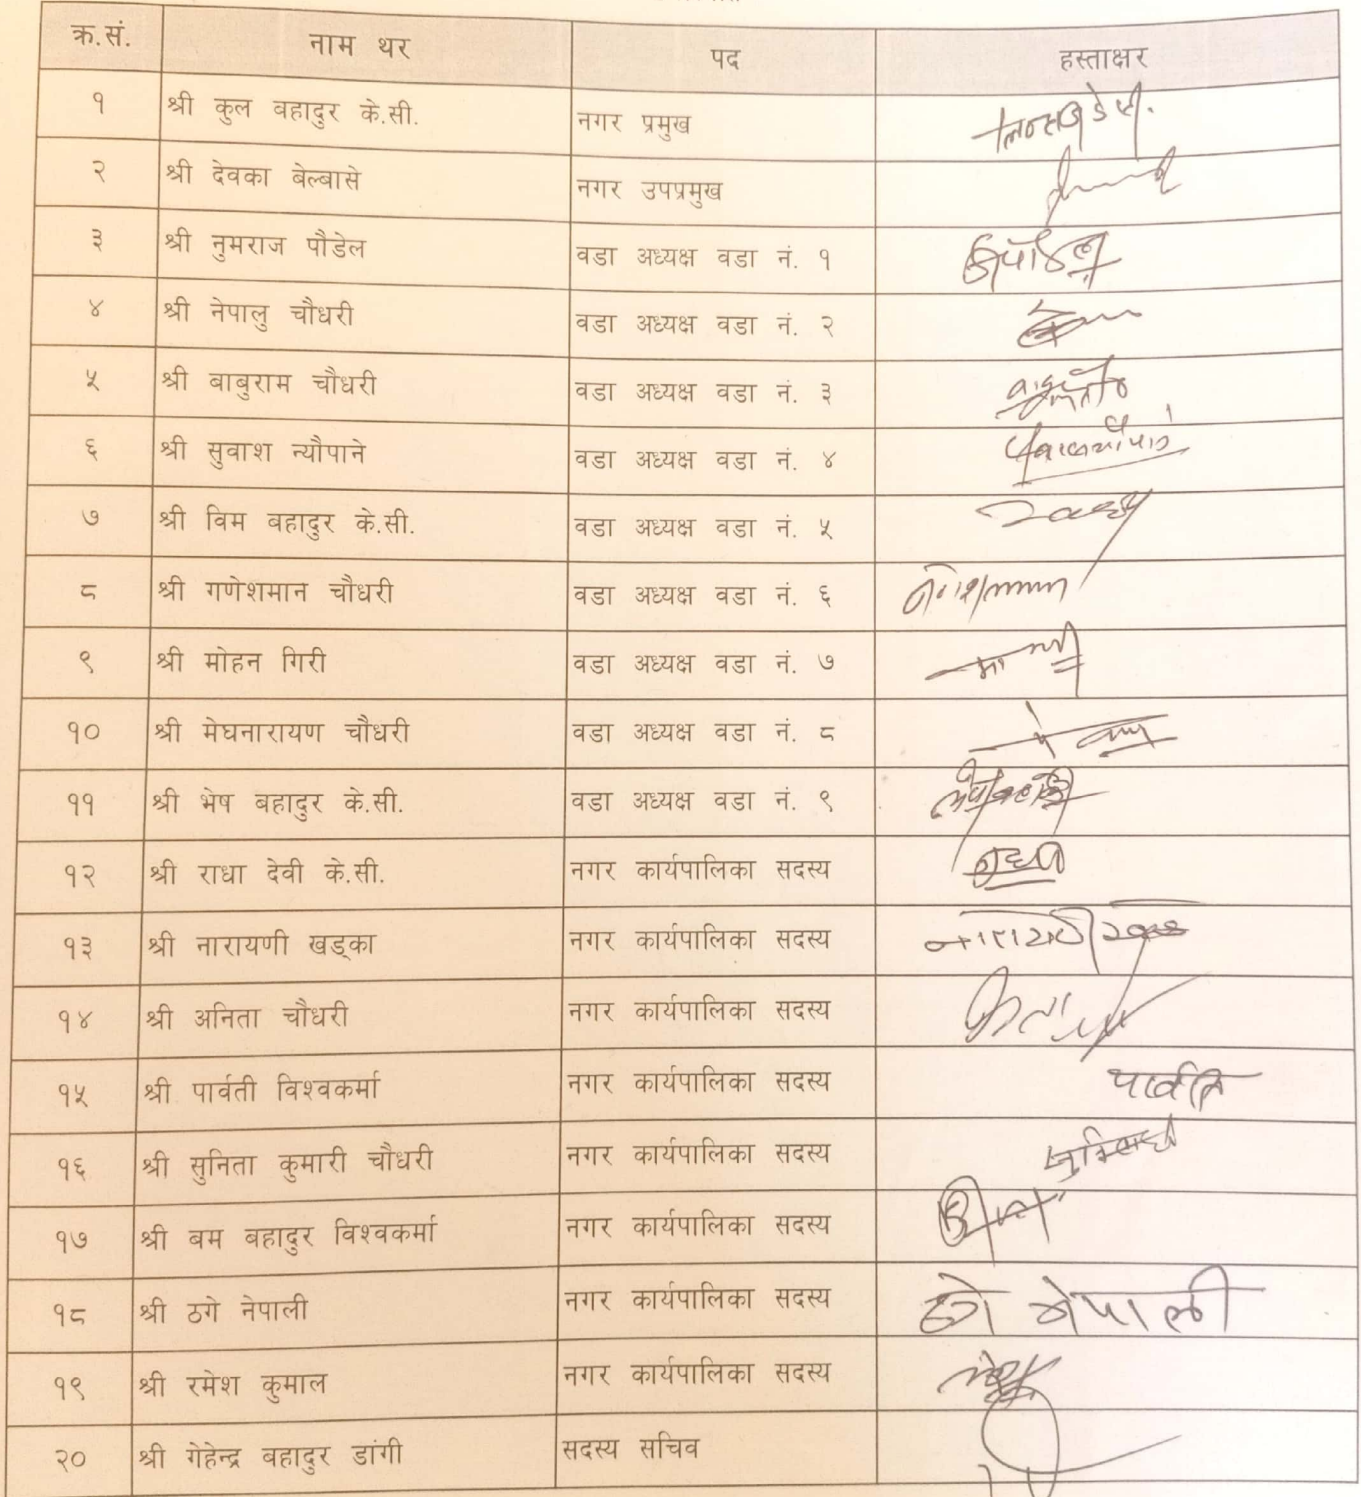 क्र.सं. नाम थर पद हस्ताक्षर
१ श्री कुल बहादुर के.सी. नगर प्रमुख
२ श्री देवका बेल्बासे नगर उपप्रमुख
३ श्री नुमराज पौडेल वडा अध्यक्ष वडा नं. १
४ श्री नेपालु चौधरी वडा अध्यक्ष वडा नं. २
५ श्री बाबुराम चौधरी वडा अध्यक्ष वडा नं. ३
६ श्री सुवाश न्यौपाने वडा अध्यक्ष वडा नं. ४
७ श्री विम बहादुर के.सी. वडा अध्यक्ष वडा नं. ५
८ श्री गणेशमान चौधरी वडा अध्यक्ष वडा नं. ६
९ श्री मोहन गिरी वडा अध्यक्ष वडा नं. ७
१० श्री मेघनारायण चौधरी वडा अध्यक्ष वडा नं. ८
११ श्री भेष बहादुर के.सी. वडा अध्यक्ष वडा नं. ९
१२ श्री राधा देवी के.सी. नगर कार्यपालिका सदस्य
१३ श्री नारायणी खड्का नगर कार्यपालिका सदस्य
१४ श्री अनिता चौधरी नगर कार्यपालिका सदस्य
१५ श्री पार्वती विश्वकर्मा नगर कार्यपालिका सदस्य पार्वति
१६ श्री सुनिता कुमारी चौधरी नगर कार्यपालिका सदस्य
१७ श्री बम बहादुर विश्वकर्मा नगर कार्यपालिका सदस्य
१८ श्री ठगे नेपाली नगर कार्यपालिका सदस्य ठगे नेपाली
१९ श्री रमेश कुमाल नगर कार्यपालिका सदस्य
२० श्री गेहेन्द्र बहादुर डांगी सदस्य सचिव